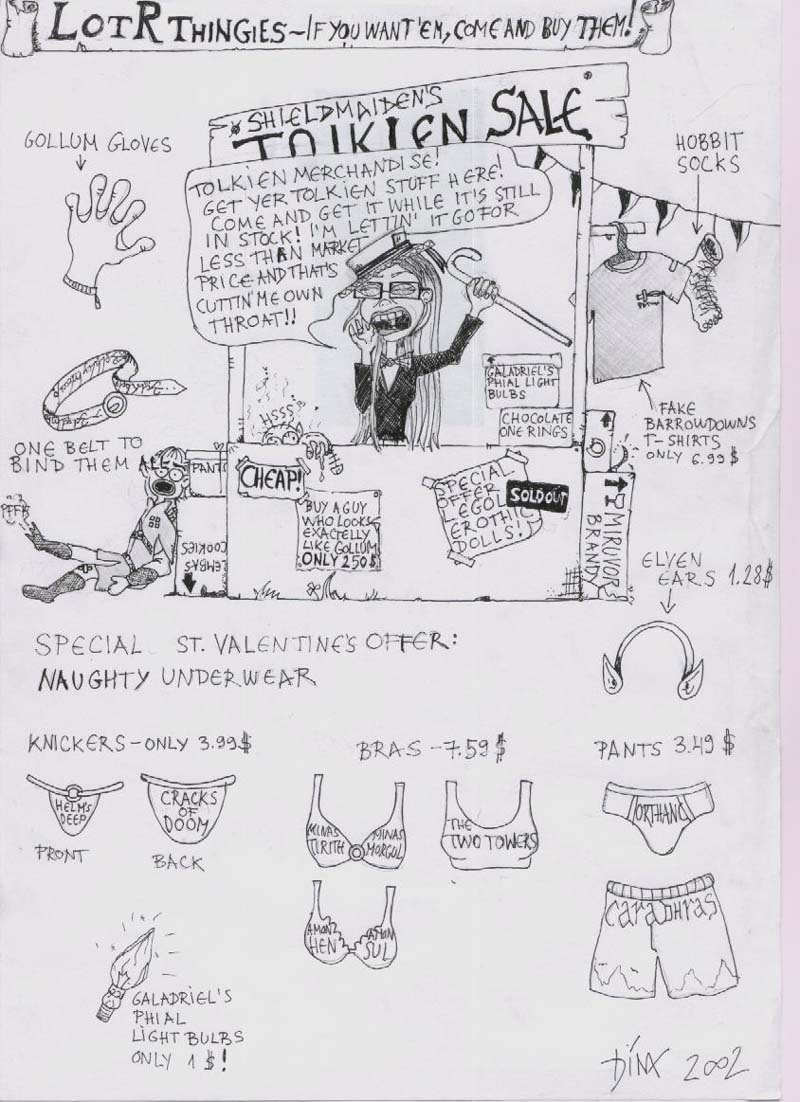 LOTR THINGIES~IF YOU WANT 'EM, COME AND BUY THEM!
SHIELDMAIDEN'S
TOLKIEN SALE
GOLLUM GLOVES
HOBBIT
SOCKS
TOLKIEN MERCHANDISE!
GET YER TOLKIEN STUFF HERE!
COME AND GET IT WHILE IT'S STILL
IN STOCK! I'M LETTIN' IT GO FOR
LESS THAN MARKET
PRICE AND THAT'S
CUTTIN' ME OWN
THROAT!!
GALADRIEL'S
PHIAL LIGHT
BULBS
CHOCOLATE
ONE RINGS
FAKE
BARROWDOWNS
T-SHIRTS
ONLY 6.99 $
ONE BELT TO
BIND THEM ALL
PANT
HSSS
CHEAP!
BUY A GUY
WHO LOOKS
EXACTELLY
LIKE GOLLUM
ONLY 250 $
SPECIAL
OFFER
LEGOL
EROTHIC
DOLLS!
SOLD OUT
PFFR
LEMBAS
COOKIES
MIRUVOR
BRANDY
ELVEN
EARS 1.28$
SPECIAL ST. VALENTINE'S OFFER:
NAUGHTY UNDERWEAR
KNICKERS - ONLY 3.99 $
BRAS - 7.59 $
PANTS 3.49 $
HELM'S
DEEP
CRACKS
OF
DOOM
FRONT
BACK
MINAS
TIRITH
MINAS
MORGUL
THE
TWO TOWERS
AMON
HEN
AMON
SUL
ORTHANC
CARADHRAS
GALADRIEL'S
PHIAL
LIGHT BULBS
ONLY 1 $!
DÍNX 2002